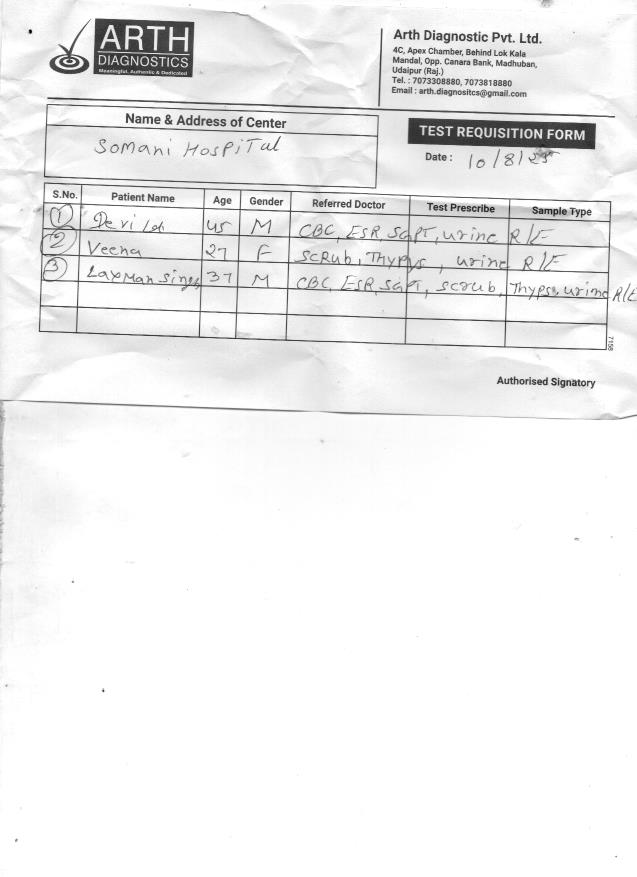 ARTH
DIAGNOSTICS
Meaningful, Authentic & Dedicated
Arth Diagnostic Pvt. Ltd.
4C, Apex Chamber, Behind Lok Kala
Mandal, Opp. Canara Bank, Madhuban,
Udaipur (Raj.)
Tel. : 7073308880, 7073818880
Email : arth.diagnositcs@gmail.com
Name & Address of Center
Somani Hospital
TEST REQUISITION FORM
Date : 10/8/25
S.No. Patient Name Age Gender Referred Doctor Test Prescribe Sample Type
1 Devilal 45 M CBC, ESR, SGPT, urine R/E
2 Veena 27 F SCRub, Thyps, urine R/E
3 Laxman Singh 37 M CBC, ESR, SGPT, scrub, Thyps, urine R/E
7158
Authorised Signatory